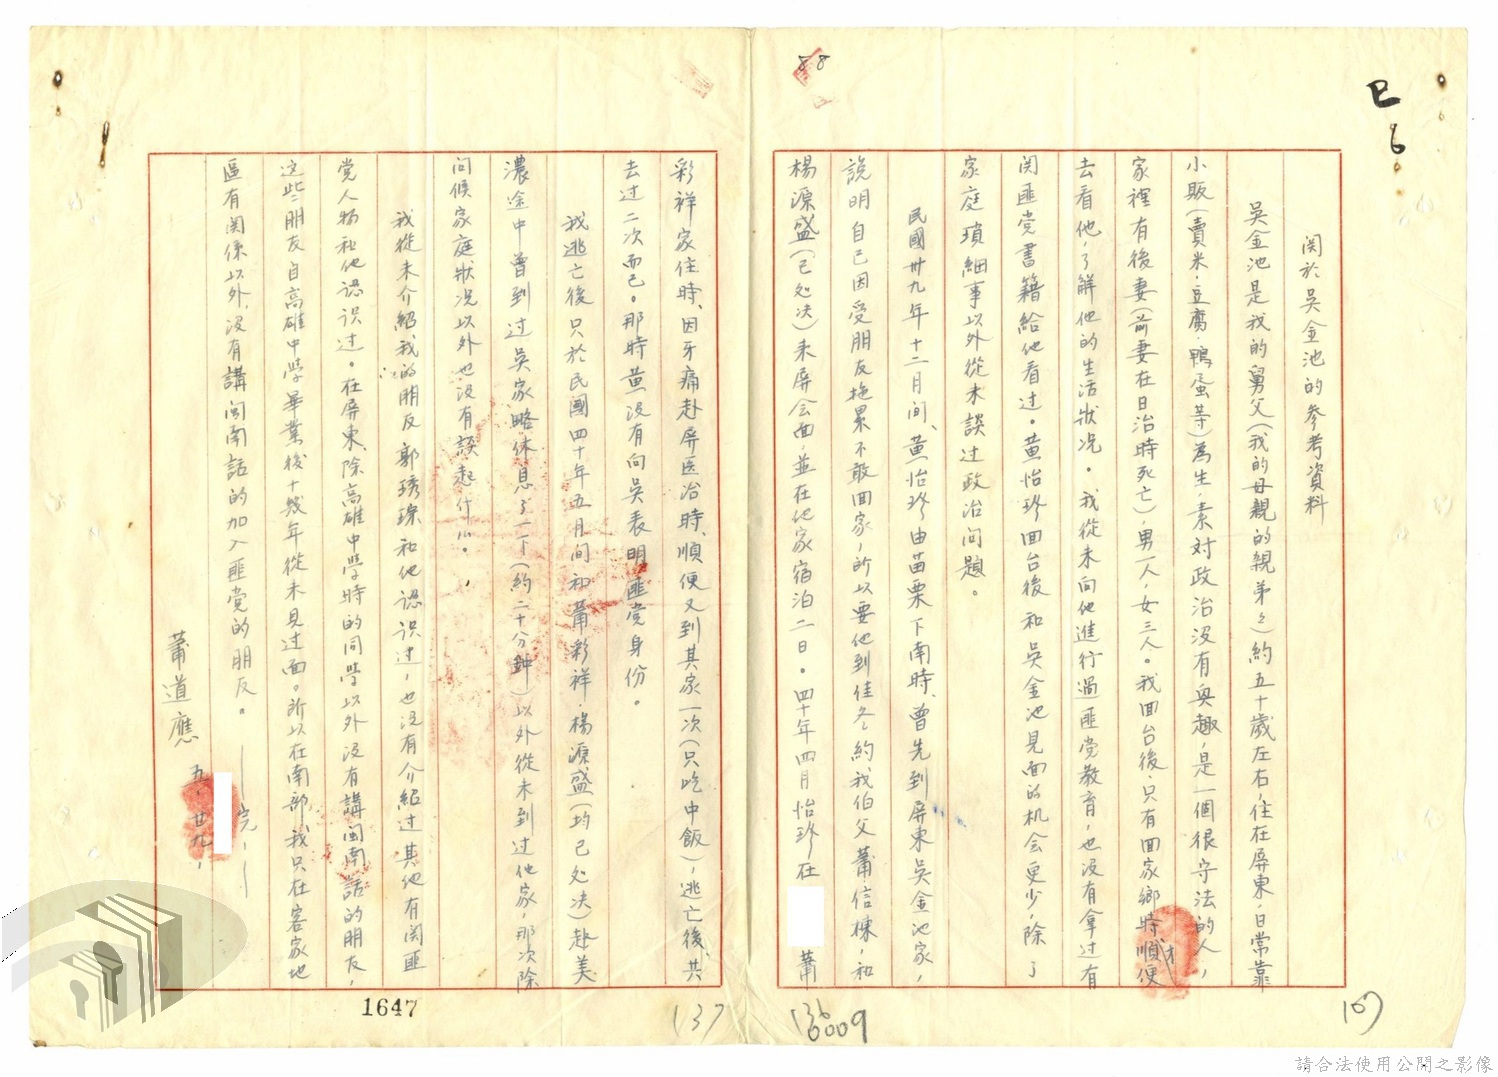 88
巳
6
关於吳金池的參考資料
吳金池是我的舅父(我的母親的親弟々)約五十歲左右,住在屏東,日常靠
小販(賣米、豆腐、鴨蛋等)為生,素対政治沒有興趣,是一個很守法的人,
家裡有後妻(前妻在日治時死亡),男一人,女三人。我回台後,只有回家鄉時順便
去看他,了解他的生活狀况。我從未向他進行過匪党教育,也沒有拿过有
関匪党書籍給他看过。黄怡珍回台後和吳金池見面的机会更少,除了
家庭瑣細事以外從未談过政治问題。
民國卅九年十二月间、黄怡珍由苗栗下南時、曾先到屏東吳金池家,
說明自己因受朋友拖累不敢回家,所以要他到佳冬約我伯父蕭信棟,和
楊源盛(已处决)来屏会面,並在他家宿泊二日。四十年四月怡珍在 蕭
彩祥家住時、因牙痛赴屏医治時、順便又到其家一次(只吃中飯),逃亡後、共
去过二次而已。那時黄没有向吳表明匪党身份。
我逃亡後只於民國四十年五月间和蕭彩祥、楊源盛(均已处决)赴美
濃途中曾到过吳家略休息了一下(約二十分鐘)以外從未到过他家,那次除
问候家庭狀况以外也没有談起什么。
我從未介紹我的朋友郭琇琮和他認识过,也没有介紹过其他有関匪
党人物和他認识过。在屏東、除高雄中学時的同学以外没有講闽南話的朋友,
这些朋友自高雄中学畢業後十幾年從未見过面。所以在南部我只在客家地
區有関係以外、没有講闽南話的加入匪党的朋友。 —完—
蕭道應 五、廿九、
1647
137
136
6009
107
請合法使用公開之影像